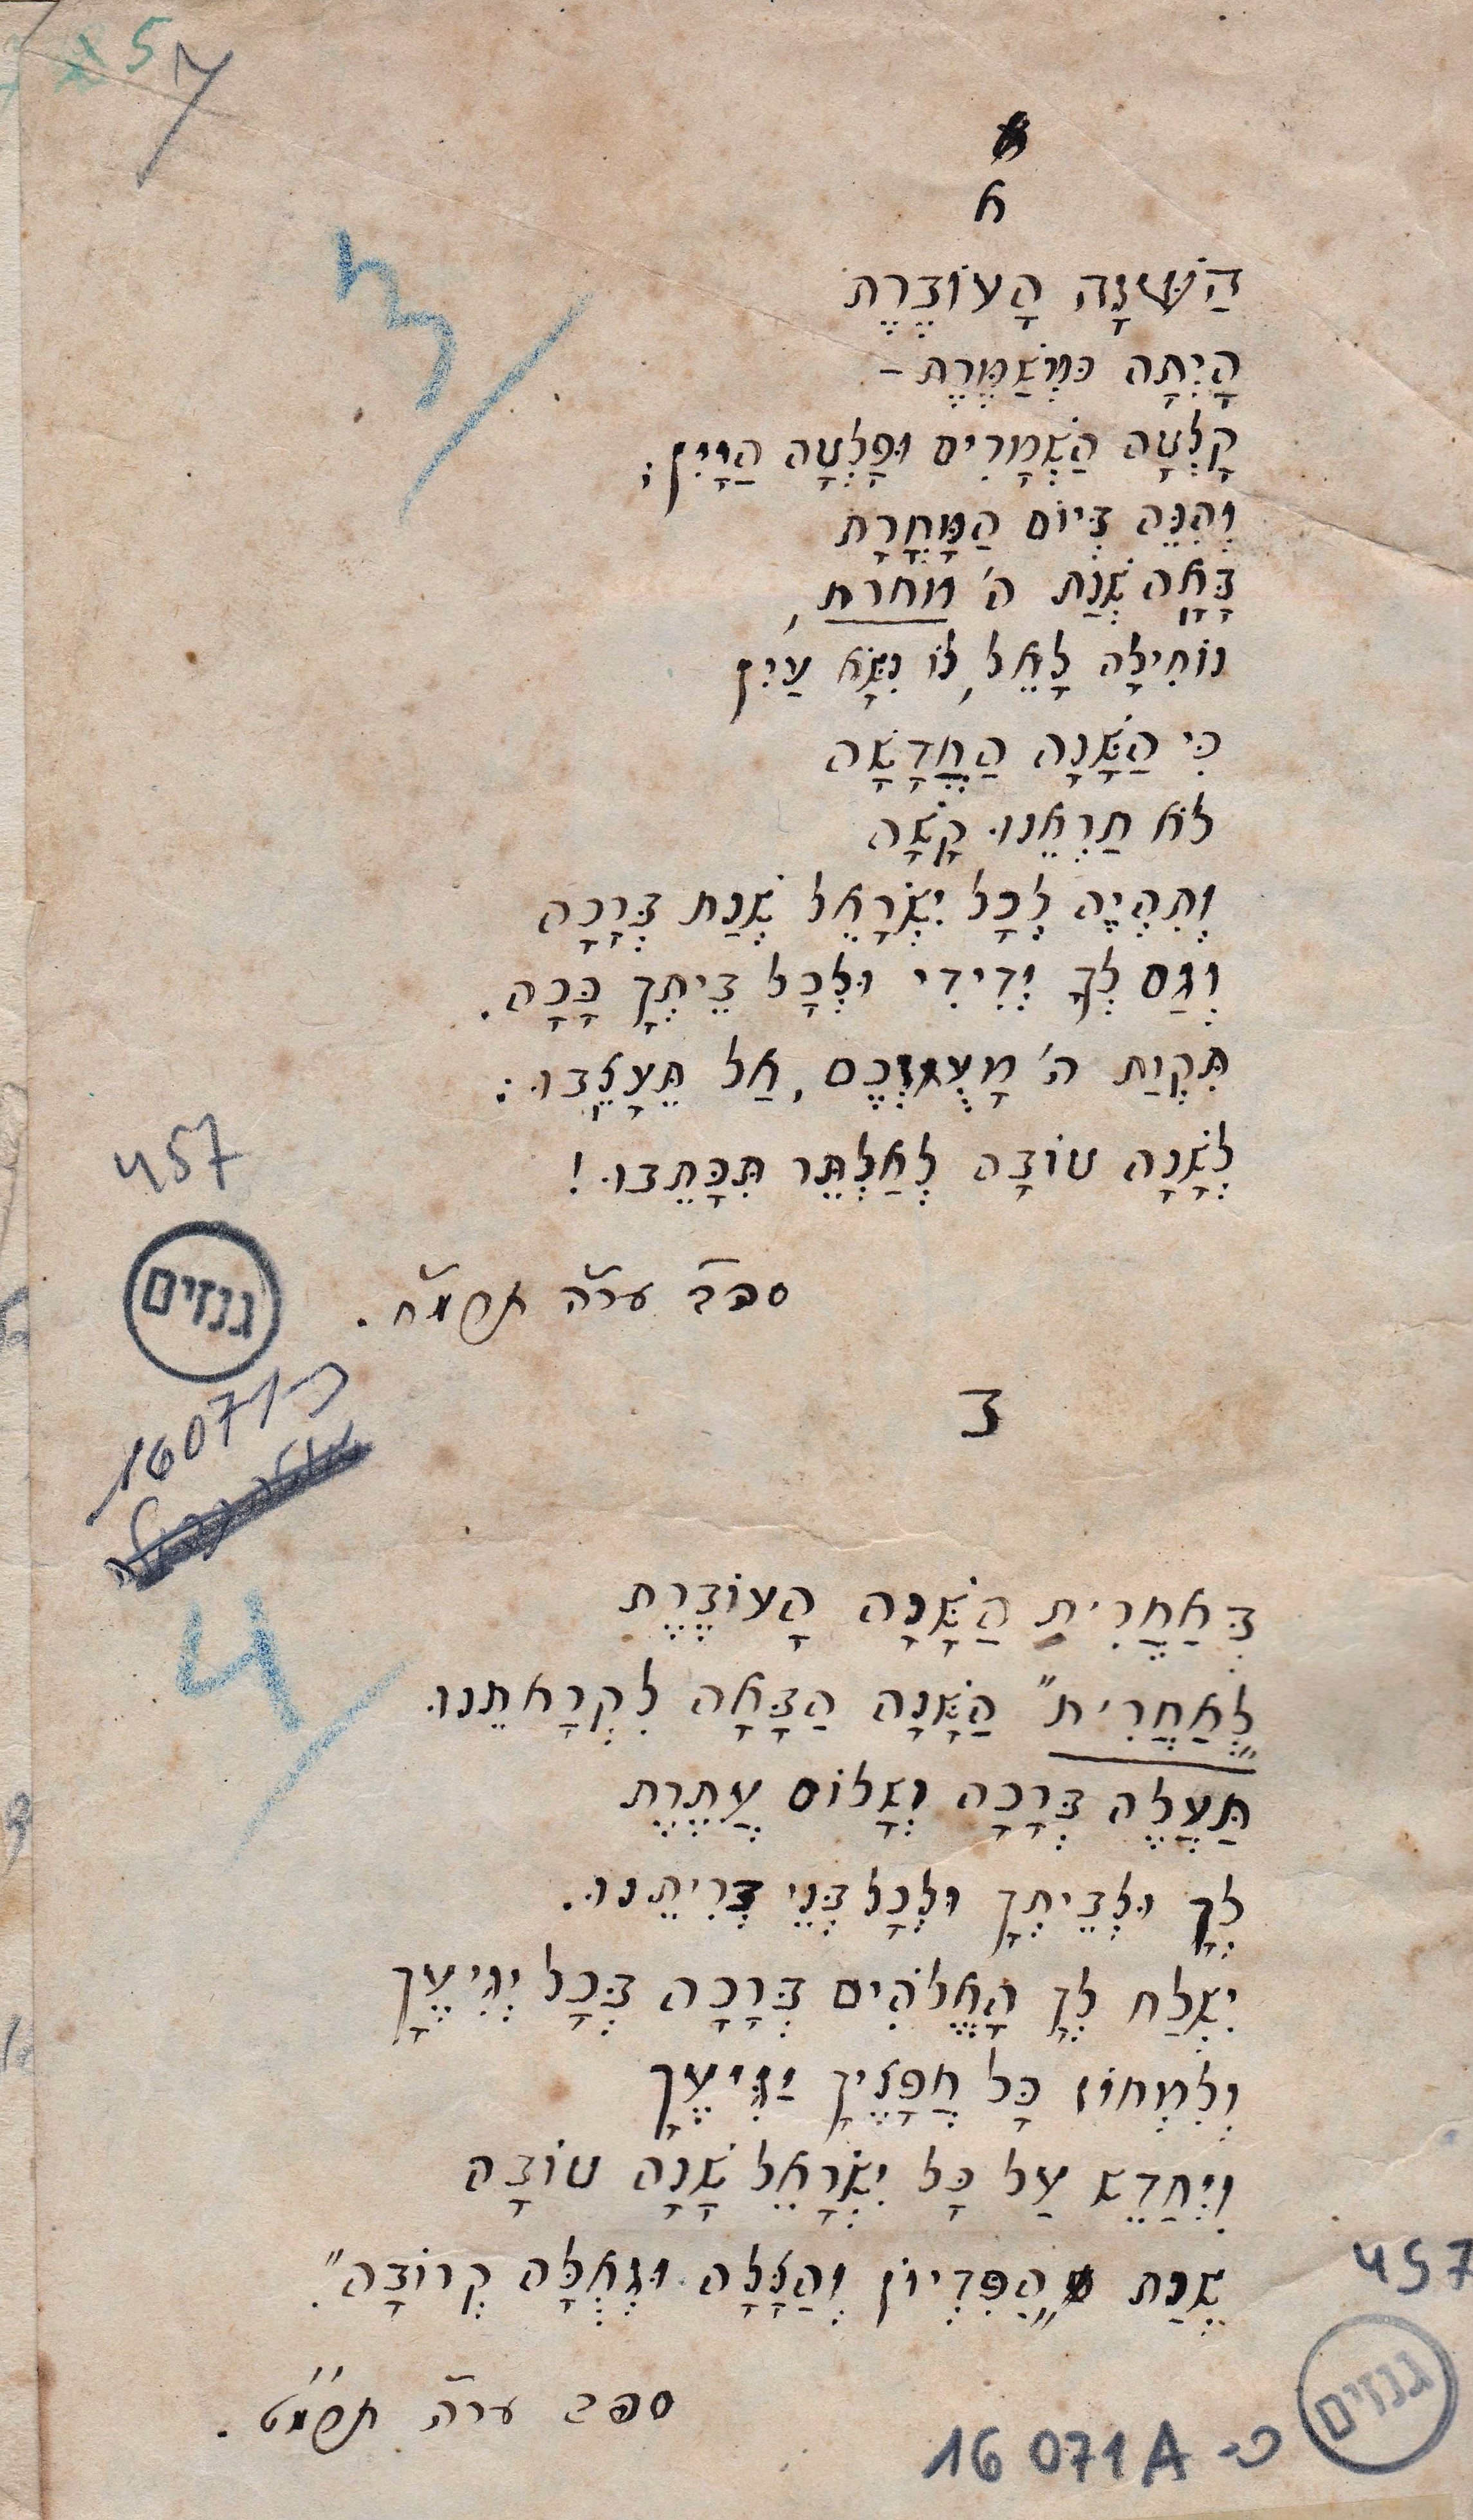 457
3
א
הַשָּׁנָה הָעוֹבֶרֶת
הָיְתָה כִּמְשַׁמֶּרֶת –
קָלְטָה הַשְּׁמָרִים וּפָלְטָה הַיָּיִן;
וְהִנֵּה בְּיוֹם הַמָּחֳרָת
בָּאָה שְׁנַת ה' מחרת,
נוֹחִילָה לָאֵל, לוֹ נִשָּׂא עַיִן
כִּי הַשָּׁנָה הַחֲדָשָׁה
לֹא תַרְאֵנוּ קָשָׁה
וְתִהְיֶה לְכָל יִשְׂרָאֵל שְׁנַת בְּרָכָה
וְגַם לְךָ יְדִידִי וּלְכָל בֵּיתְךָ כָּכָה.
תִּקְוַת ה' מָעֻזְּכֶם, אַל תֵּעָצֵבוּ:
לְשָׁנָה טוֹבָה לְאַלְתֵּר תִּכָּתֵבוּ!
457
ער"ה
גנזים
כ-16071
ב
4
בְּאַחֲרִית הַשָּׁנָה הָעוֹבֶרֶת
לְאַחֲרִית" הַשָּׁנָה הַבָּאָה לִקְרָאתֵנוּ
תַּעֲלֶה בְּרָכָה וְשָׁלוֹם עֲתֶרֶת
לְךָ וּלְבֵיתְךָ וּלְכָל בְּנֵי בְּרִיתֵנוּ.
יִשְׁלַח לְךָ הָאֱלֹהִים בְּרָכָה בְּכָל יְגִיעֶךָ
וְלִמְחוֹז כָּל חֲפָצֶיךָ יַגִּיעֶךָ
וִיְחַדֵּשׁ עַל כָּל יִשְׂרָאֵל שָׁנָה טוֹבָה
שְׁנַת הַפִּדְיוֹן וְהַצָּלָה וּגְאֻלָּה קְרוֹבָה".
457
ער"ה
גנזים
כ- 16 071A